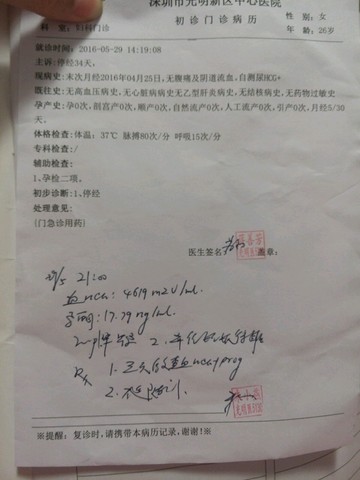 深圳市光明新区中心医院
科 室：妇科门诊 初诊门诊病历 性别：女
年龄：26岁
就诊时间：2016-05-29 14:19:08
主诉：停经34天。
现病史：末次月经2016年04月25日，无腹痛及阴道流血，自测尿HCG+
既往史：无高血压病史，无心脏病病史无乙型肝炎病史，无结核病史，无药物过敏史
孕产史：孕0次，剖宫产0次，顺产0次，自然流产0次，人工流产0次，引产0次，月经5/30
天。
体格检查：体温：37℃ 脉搏80次/分 呼吸15次/分
专科检查：/
辅助检查：
1、孕检二项。
初步诊断：1、停经
处理意见：
(门急诊用药)
医生签名 盖章：
21:00
血HCG：4619 mIU/mL
孕酮：17.79 ng/mL
※提醒：复诊时，请携带本病历记录，谢谢！※